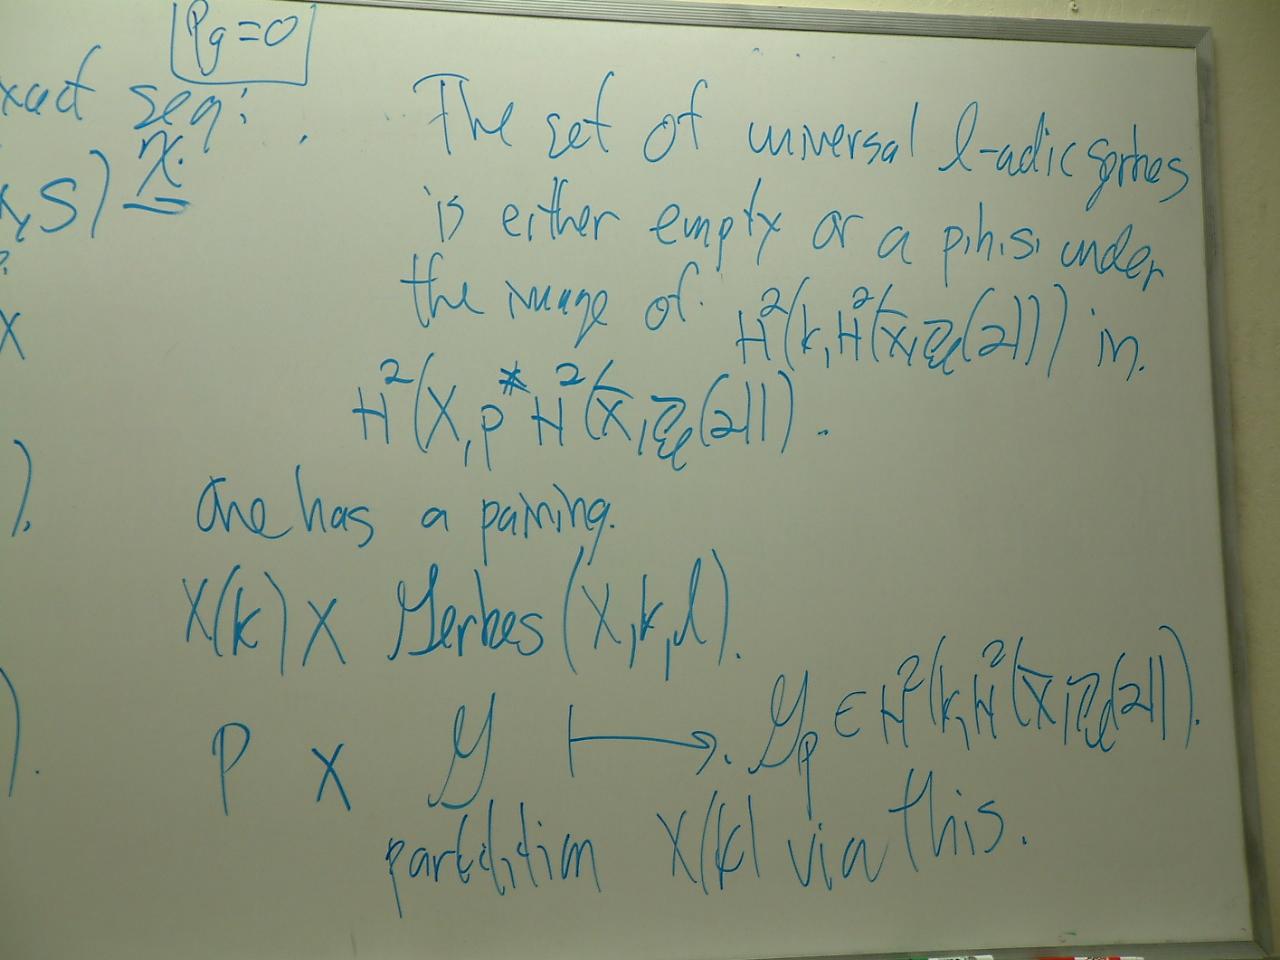 Pg=0
xact seq:
x,S) χ.
x
The set of universal l-adic gerbes
is either empty or a p.h.s. under
the image of H²(k,H²(X̄,ℤ_l(2))) in.
H²(X,p*H²(X̄,ℤ_l(2))).
One has a pairing.
X(k) × Gerbes(X,k,l).
P × 𝒢 ↦ 𝒢_p ∈ H²(k,H²(X̄,ℤ_l(2))).
partitition X(k) via this.